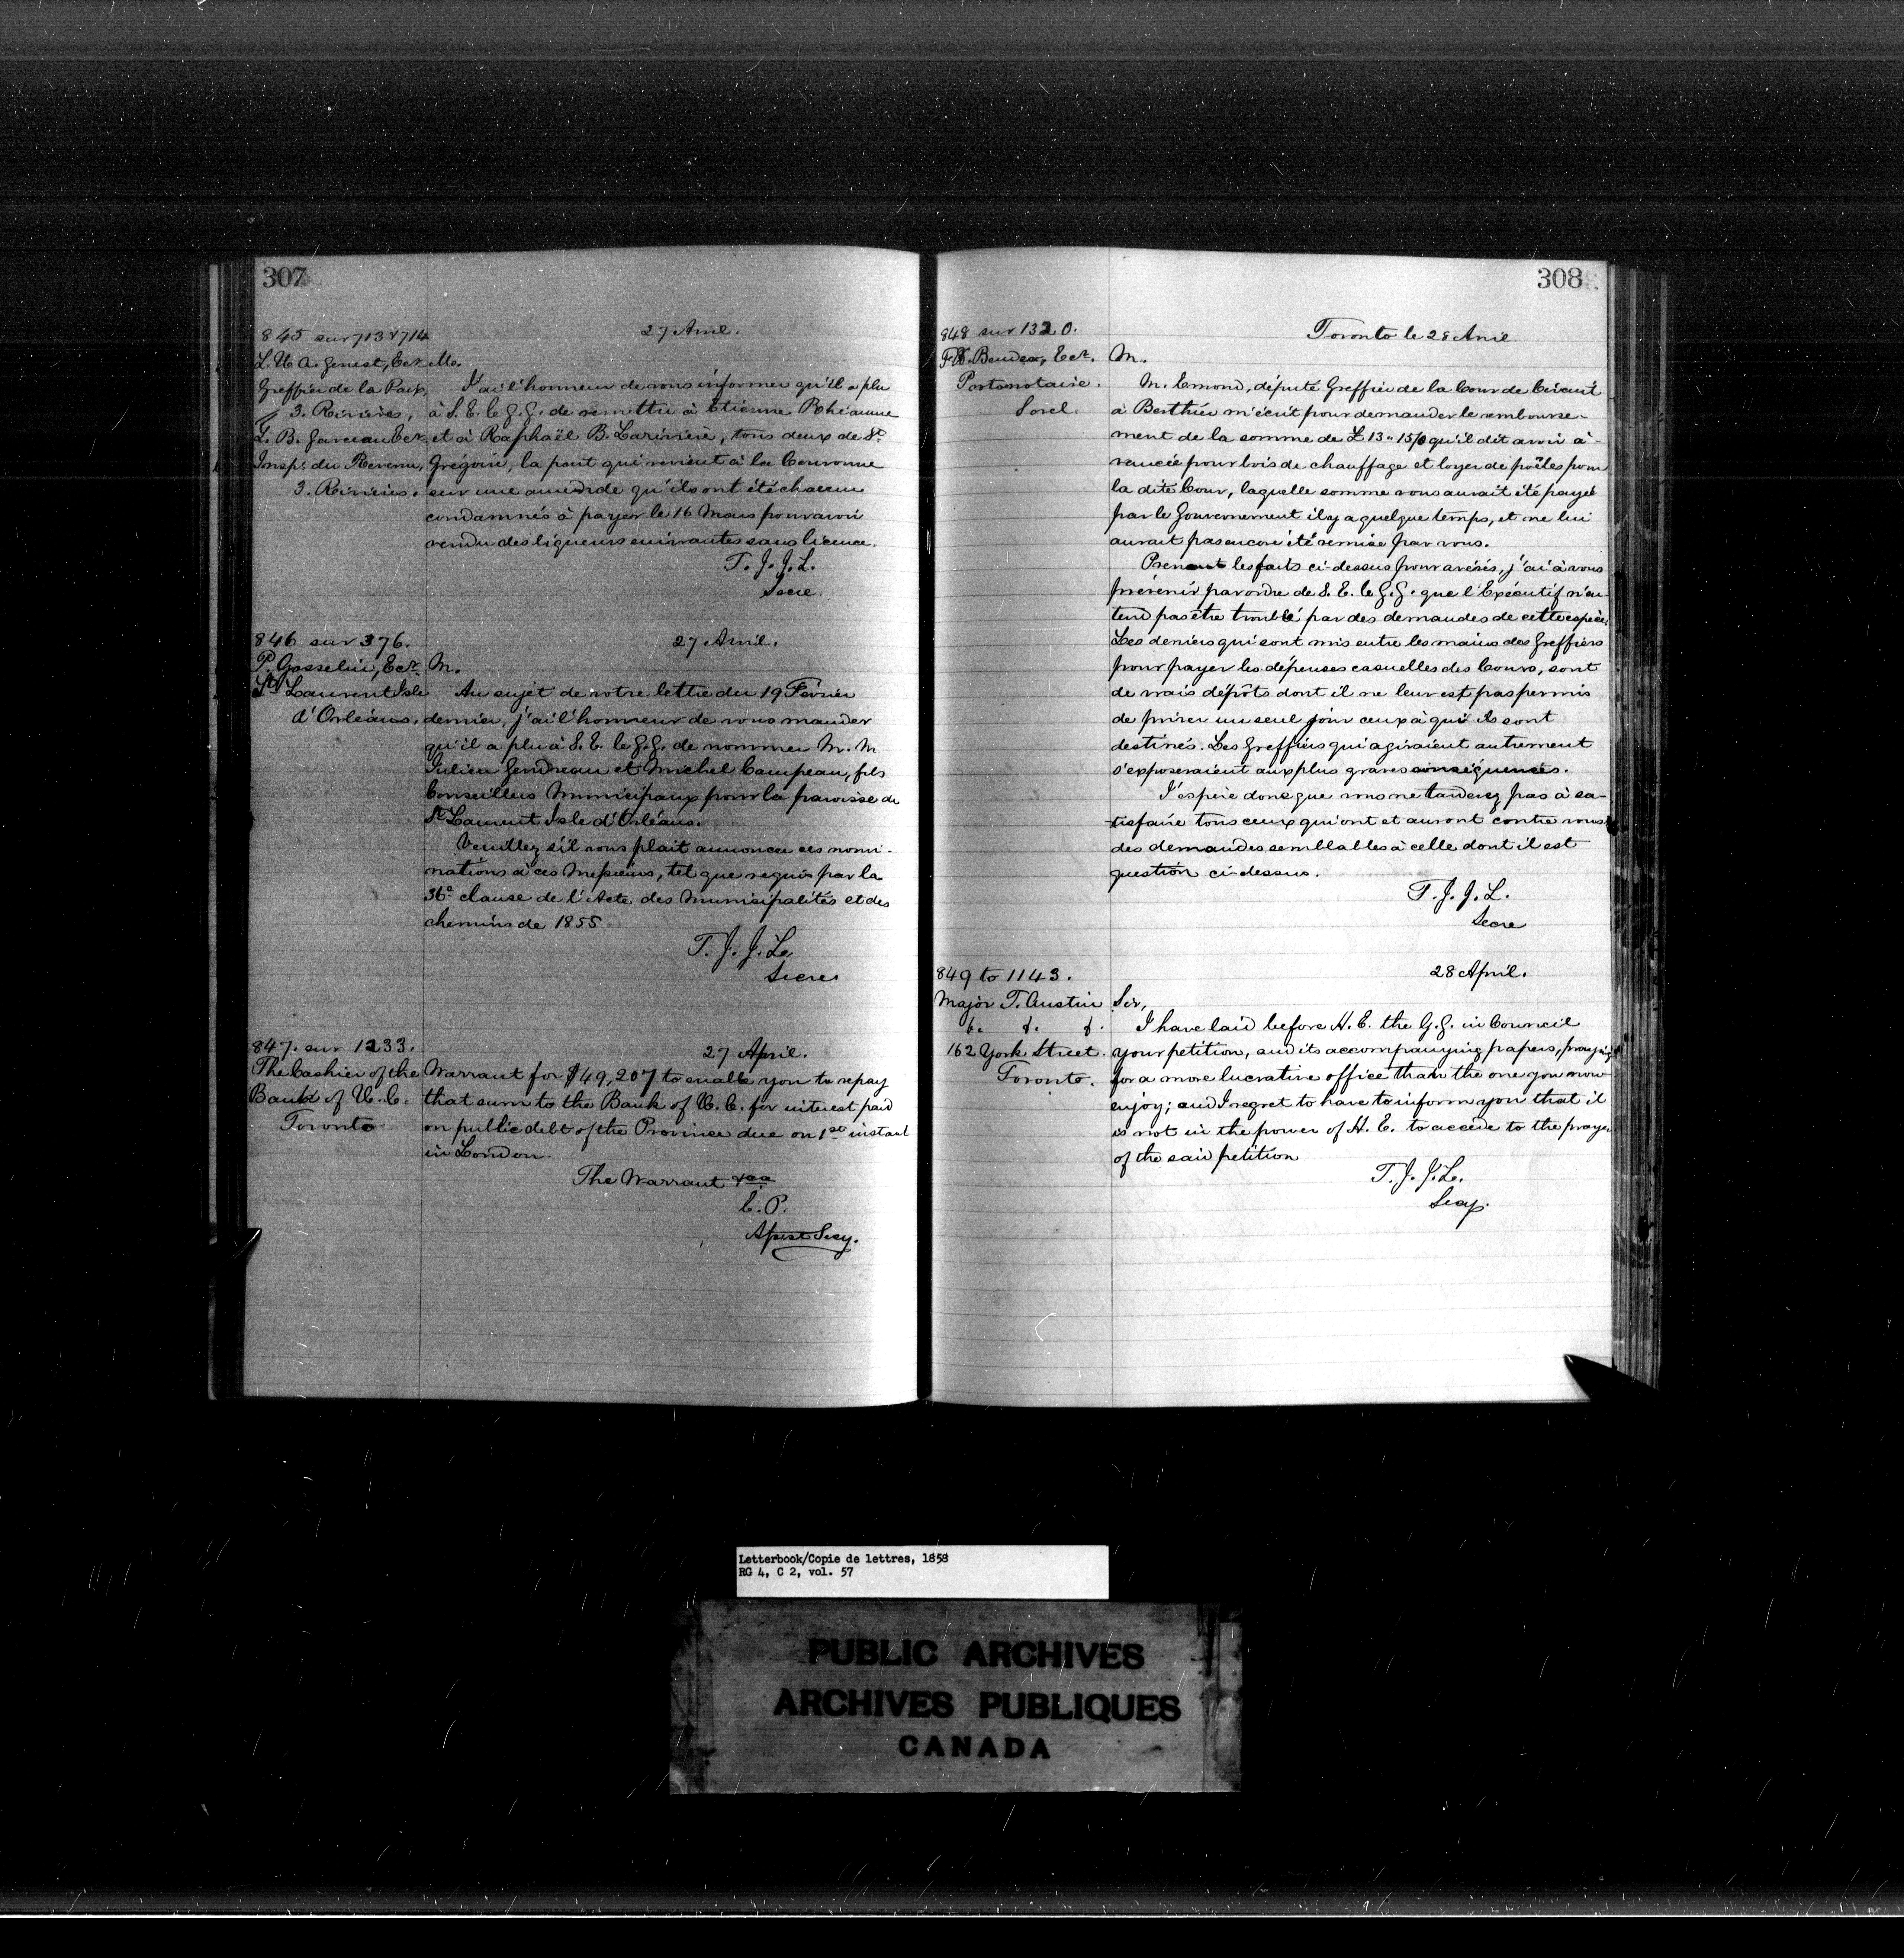 307
845 sur 713 & 714
27 Avril.
L. U. A. Genest, Ecr.
Greffier de la Paix,
3. Rivières,
L. B. Garceau Ecr.
Insp. du Revenu,
3. Rivières.
M.
J'ai l'honneur de vous informer qu'il a plu
à S. E. le G. G. de remettre à Etienne Rhéaume
et à Raphaël B. Larivière, tous deux de St.
Grégoire, la part qui revient à la Couronne
sur une amende qu'ils ont été chacun
condamnés à payer le 16 Mars pour avoir
vendu des liqueurs enivrantes sans licence.
T. J. J. L.
Secre.
846 sur 376.
27 Avril.
P. Gosselin, Ecr.
St. Laurent Isle
d'Orléans.
M.
Au sujet de votre lettre du 19 Février
dernier, j'ai l'honneur de vous mander
qu'il a plu à S. E. le G. G. de nommer M. M.
Julien Gendreau et Michel Campeau, fils
Conseillers Municipaux pour la paroisse de
St. Laurent Isle d'Orléans.
Veuillez s'il vous plait annoncer ces nomi-
nations à ces Messieurs, tel que requis par la
36e clause de l'Acte des Municipalités et des
chemins de 1855
T. J. J. L.
Secre.
847. sur 1233.
27 April.
The Cashier of the
Bank of U. C.
Toronto
Warrant for $49,207 to enable you to repay
that sum to the Bank of U. C. for interest paid
on public debt of the Province due on 1st instant
in London.
The Warrant &ca
E. P.
Assist Secy.
308
848 sur 1320.
Toronto le 28 Avril
Protonotaire.
Sorel.
M.
M. Emond, député Greffier de la Cour de Circuit
à Berthier m'écrit pour demander le rembourse-
ment de la somme de £13"15/0 qu'il dit avoir a-
vancée pour bois de chauffage et loyer de poêles pour
la dite Cour, laquelle somme vous aurait été payée
par le Gouvernement il y a quelque temps, et ne lui
aurait pas encore été remise par vous.
Prenant les faits ci-dessus pour avérés, j'ai à vous
prévenir par ordre de S. E. le G. G. que l'Exécutif n'en-
tend pas être troublé par des demandes de cette espèce.
Les deniers qui sont mis entre les mains des Greffiers
pour payer les dépenses casuelles des Cours, sont
de vrais dépôts dont il ne leur est pas permis
de priver un seul jour ceux à qui ils sont
destinés. Les Greffiers qui agiraient autrement
s'exposeraient aux plus graves conséquences.
J'espère donc que vous ne tarderez pas à sa-
tisfaire tous ceux qui ont et auront contre vous
des demandes semblables à celle dont il est
question ci-dessus.
T. J. J. L.
Secre
849 to 1143.
28 April.
Major T. Austin
&. &. &.
162 York Street.
Toronto.
Sir,
I have laid before H. E. the G. G. in Council
your petition, and its accompanying papers, praying
for a more lucrative office than the one you now
enjoy; and I regret to have to inform you that it
is not in the power of H. E. to accede to the prayer
of the said petition
T. J. J. L.
Secy.
Letterbook/Copie de lettres, 1858
RG 4, C 2, vol. 57
PUBLIC ARCHIVES
ARCHIVES PUBLIQUES
CANADA